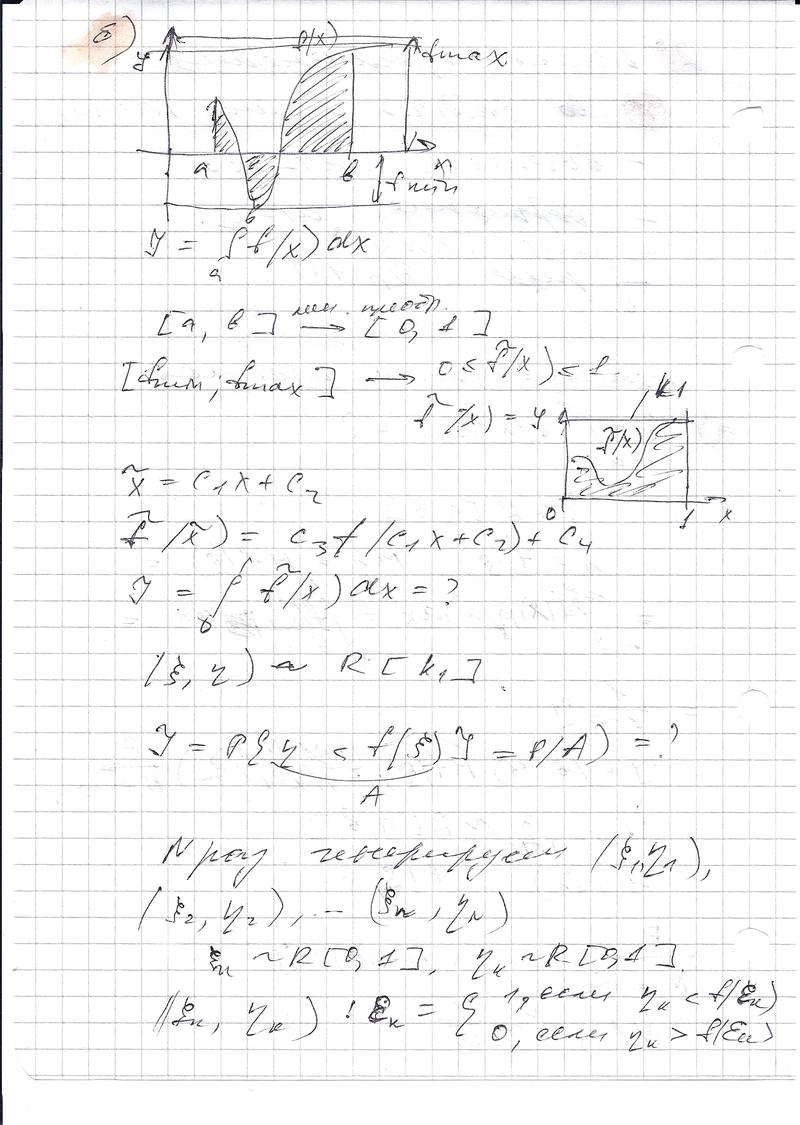 б)
y f(x) fmax
a b x
fmin
J = ∫ f(x) dx
b
a
[a, b] лин. преобр. → [0, 1]
[fmin; fmax] → 0 ≤ f̃(x) ≤ 1
f̃(x) = y k1
f̃(x)
0 1 x
x̃ = c₁x + c₂
f̃(x̃) = c₃f(c₁x + c₂) + c₄
J = ∫ f̃(x) dx = ?
0
(ξ, η) ~ R[k₁]
J = P{η < f(ξ)} = P(A) = ?
A
N раз генерируем (ξ₁, η₁),
(ξ₂, η₂), … (ξₙ, ηₙ)
ξₖ ~ R[0, 1], ηₖ ~ R[0, 1].
(ξₖ, ηₖ) : εₖ = { 1, если ηₖ < f(ξₖ)
0, если ηₖ > f(ξₖ)